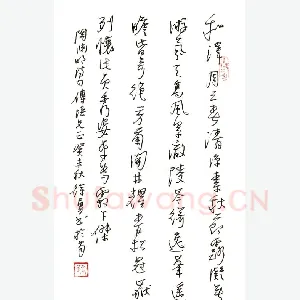 和澤周三春清涼素秋節露凝無
游氛天高風景澈陵岑聳逸峰遥
瞻皆奇絶芳菊開林耀青松冠巖
列懷此貞秀姿卓為霜下傑
陶淵明詩句